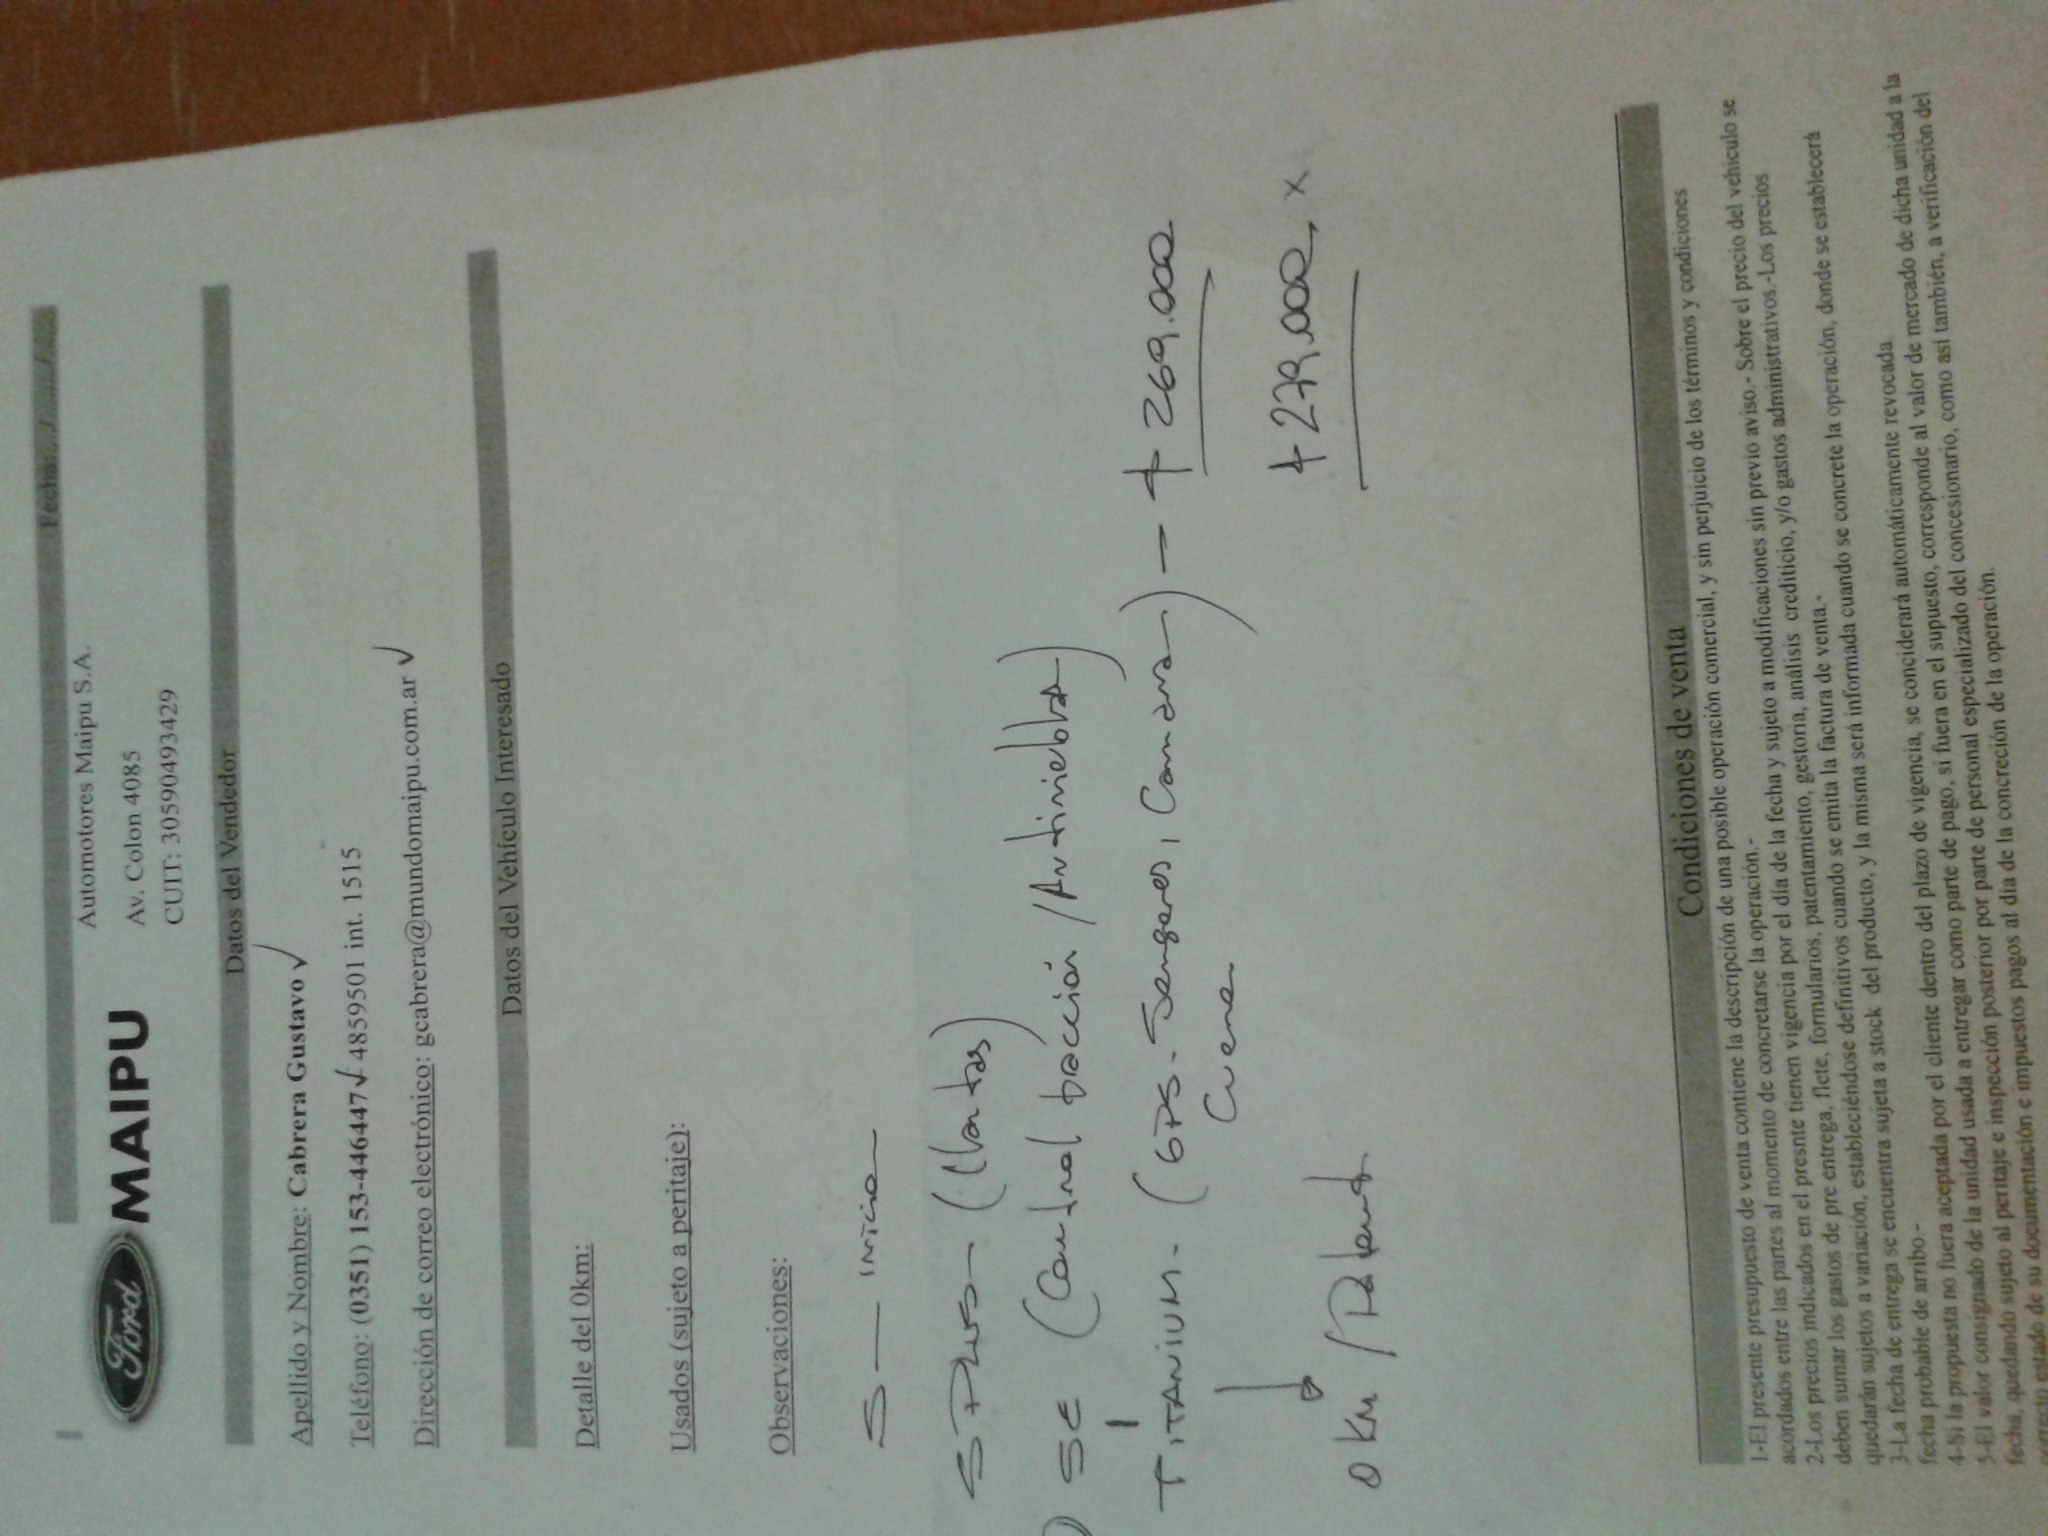 Fecha:..../......../........
Ford MAIPU
Automotores Maipu S.A.
Av. Colon 4085
CUIT: 30590493429
Datos del Vendedor
Apellido y Nombre: Cabrera Gustavo ✓
Teléfono: (0351) 153-446447 ✓ 4859501 int. 1515
Dirección de correo electrónico: gcabrera@mundomaipu.com.ar ✓
Datos del Vehículo Interesado
Detalle del 0km:
Usados (sujeto a peritaje):
Observaciones:
S —
S PLUS - (Llantas)
SE (Control tracción / Antiniebla)
TITANIUM - (GPS - Sensores, Camara) - $ 269.000
Cuero
$ 279.000 x
0 Km /
Condiciones de venta
1-El presente presupuesto de venta contiene la descripción de una posible operación comercial, y sin perjuicio de los términos y condiciones
acordados entre las partes al momento de concretarse la operación.-
2-Los precios indicados en el presnte tienen vigencia por el día de la fecha y sujeto a modificaciones sin previo aviso.- Sobre el precio del vehiculo se
deben sumar los gastos de pre entrega, flete, formularios, patentamiento, gestoria, análisis crediticio, y/o gastos administrativos.-Los precios
quedarán sujetos a variación, estableciéndose definitivos cuando se emita la factura de venta.-
3-La fecha de entrega se encuentra sujeta a stock del producto, y la misma será informada cuando se concrete la operación, donde se establecerá
fecha probable de arribo.-
4-Si la propuesta no fuera aceptada por el cliente dentro del plazo de vigencia, se considerará automáticamente revocada.
5-El valor consignado de la unidad usada a entregar como parte de pago, si fuera en el supuesto, corresponde al valor de mercado de dicha unidad a la
fecha, quedando sujeto al peritaje e inspección posterior por parte de personal especializado del concesionario, como así también, a verificación del
correcto estado de su documentación e impuestos pagos al día de la concreción de la operación.